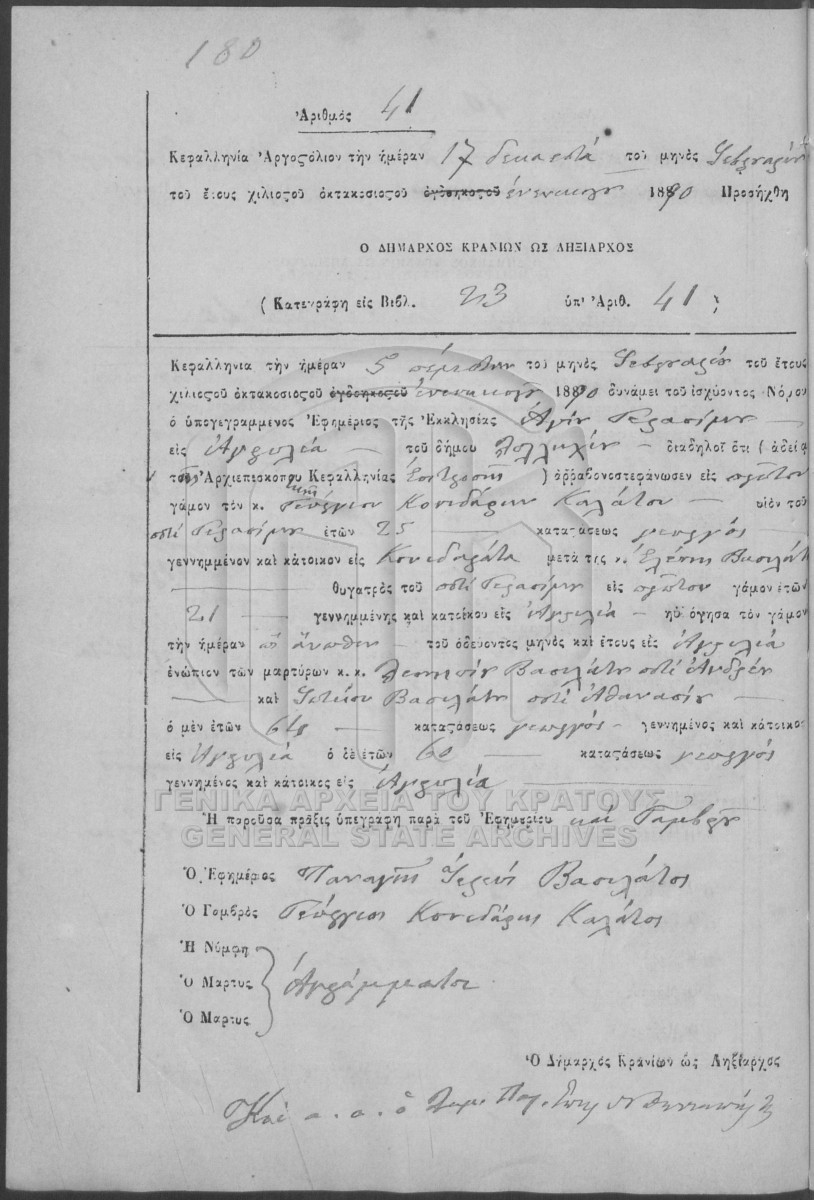 180
Ἀριθμός 41
Κεφαλληνία Ἀργοστόλιον τὴν ἡμέραν 17 δεκαεπτά τοῦ μηνὸς Φεβρουαρίου
τοῦ ἔτους χιλιοστοῦ ὀκτακοσιοστοῦ ὀγδοηκοστοῦ ἐνενηκοστοῦ 1890 Προσήχθη
Ο ΔΗΜΑΡΧΟΣ ΚΡΑΝΙΩΝ ΩΣ ΛΗΞΙΑΡΧΟΣ
(Κατεγράφη εἰς Βιβλ. 23 ὑπ' Ἀριθ. 41)
Κεφαλληνια τὴν ἡμέραν 5 πέμπτην τοῦ μηνὸς Φεβρουαρίου τοῦ ἔτους
χιλιοστοῦ ὀκτακοσιοστοῦ ὀγδοηκοστοῦ ἐνενηκοστοῦ 1890 δυνάμει τοῦ ἰσχύοντος Νόμου
ὁ ὑπογεγραμμενος Ἐφημέριος τῆς Ἐκκλησίας Ἁγίου Γερασίμου
εἰς τοῦ δήμου διαδηλοῖ ὅτι (ἀδείᾳ
τοῦ Ἀρχιεπισκοπου Κεφαλληνίας Ἐπιτροπῆς) ἀῤῥαβονοστεφάνωσεν εἰς πρῶτον
γάμον τὸν κ. Γεώργιον Κονιδάρην Καλάτον υἱὸν τοῦ
ποτέ Γερασίμου ἐτῶν 25 καταστάσεως γεωργός
γεννημμένον καὶ κάτοικον εἰς Κονιδαράτα μετὰ της κ. Ἑλένης Βασιλάτ
θυγατρὸς τοῦ ποτέ Γερασίμου εἰς πρῶτον γάμον ἐτῶν
21 γεννημμένης καὶ κατοίκου εἰς ηὐλόγησα τὸν γάμον
τὴν ἡμέραν ὡς ἄνωθεν τοῦ ὁδεύοντος μηνὸς καὶ ἔτους εἰς
ἐνώπιον τῶν μαρτύρων κ. κ. Βασιλάτου ποτέ Ἀνδρέου
καὶ Βασιλάτου ποτέ Ἀθανασίου
ὁ μὲν ἐτῶν 64 καταστάσεως γεωργός γεννημένος καὶ κάτοικος
εἰς ὁ δὲ ἐτῶν 60 καταστάσεως γεωργός
γεννημένος καὶ κάτοικος εἰς
ΓΕΝΙΚΑ ΑΡΧΕΙΑ ΤΟΥ ΚΡΑΤΟΥΣ
Ἡ παροῦσα πρᾶξις ὑπεγράφη παρὰ τοῦ Ἐφημερίου καί Γαμβροῦ
GENERAL STATE ARCHIVES
Ὁ Ἐφημέριος Παναγῆς Ἱερεύς Βασιλάτος
Ὁ Γαμβρὸς Γεώργιος Κονιδάρης Καλάτος
Ἡ Νύμφη
Ὁ Μαρτυς Ἀγράμματοι
Ὁ Μαρτυς
Ὁ Δήμαρχὸς Κρανίων ὡς Ληξίαρχος